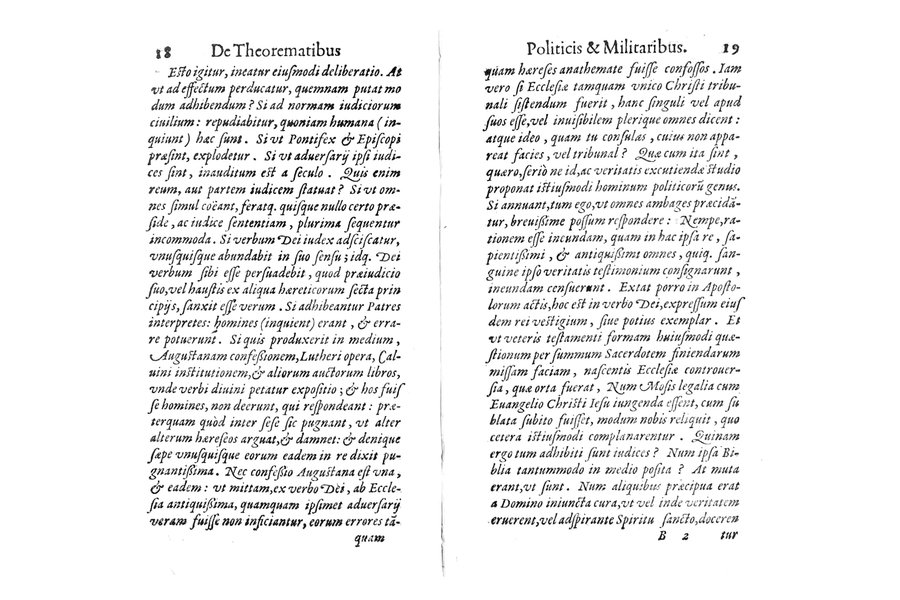 18 De Theorematibus
Esto igitur, ineatur eiusmodi deliberatio. At
vt ad effectum perducatur, quemnam putat mo
dum adhibendum? Si ad normam iudiciorum
ciuilium: repudiabitur, quoniam humana (in-
quiunt) hæc sunt. Si vt Pontifex & Episcopi
præsint, explodetur. Si vt aduersarij ipsi iudi-
ces sint, inauditum est a seculo. Quis enim
reum, aut partem iudicem statuat? Si vt om-
nes simul coëant, feratq. quisque nullo certo præ-
side, ac iudice sententiam, plurima sequentur
incommoda. Si verbum Dei iudex adsciscatur,
vnusquisque abundabit in suo sensu; idq. Dei
verbum sibi esse persuadebit, quod præiudicio
suo, vel haustis ex aliqua hæreticorum secta prin
cipijs, sanxit esse verum. Si adhibeantur Patres
interpretes: homines (inquient) erant, & erra-
re potuerunt. Si quis produxerit in medium,
Augustanam confessionem, Lutheri opera, Cal-
uini institutionem, & aliorum auctorum libros,
vnde verbi diuini petatur expositio; & hos fuis
se homines, non deerunt, qui respondeant: præ-
terquam quod inter sese sic pugnant, vt alter
alterum hæreseos arguat, & damnet: & denique
sæpe vnusquisque eorum eadem in re dixit pu-
gnantissima. Nec confessio Augustana est vna,
& eadem: vt mittam, ex verbo Dei, ab Eccle-
sia antiquissima, quamquam ipsimet aduersarij
veram fuisse non inficiantur, eorum errores tā-
quam
Politicis & Militaribus. 19
quam hæreses anathemate fuisse confossos. Iam
vero si Ecclesiæ tamquam vnico Christi tribu-
nali sistendum fuerit, hanc singuli vel apud
suos esse, vel inuisibilem plerique omnes dicent:
atque ideo, quam tu consulas, cuius non appa-
reat facies, vel tribunal? Quæ cum ita sint,
quæro, seriò ne id, ac veritatis excutiendæ studio
proponat istiusmodi hominum politicorū genus.
Si annuant, tum ego, vt omnes ambages præcidā-
tur, breuissime possum respondere: Nempe, ra-
tionem esse incundam, quam in hac ipsa re, sa-
pientissimi, & antiquissimi omnes, quiq. san-
guine ipso veritatis testimonium consignarunt,
ineundam censuerunt. Extat porro in Aposto-
lorum actis, hoc est in verbo Dei, expressum eius
dem rei vestigium, siue potius exemplar. Et
vt veteris testamenti formam huiusmodi quæ-
stionum per summum Sacerdotem finiendarum
missam faciam, nascentis Ecclesiæ controuer-
sia, quæ orta fuerat, Num Mosis legalia cum
Euangelio Christi Iesu iungenda essent, cum su
blata subito fuisset, modum nobis reliquit, quo
cetera istiusmodi complanarentur. Quinam
ergo tum adhibiti sunt iudices? Num ipsa Bi-
blia tantummodo in medio posita? At muta
erant, vt sunt. Num aliquibus præcipua erat
a Domino iniuncta cura, vt vel inde veritatem
eruerent, vel adspirante Spiritu sancto, doceren
B 2 tur